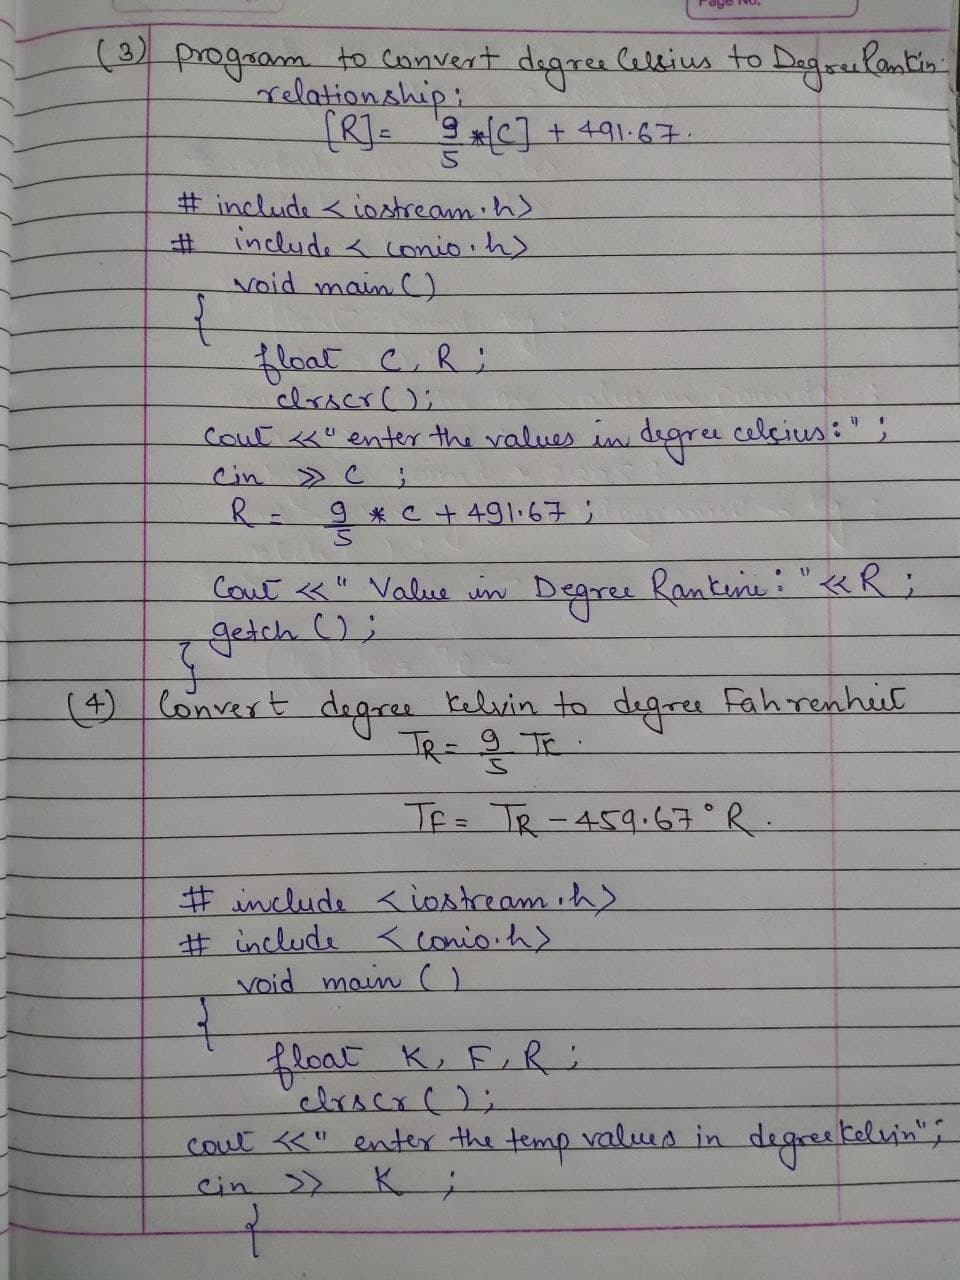 Page No.
(3) program to convert degree Celsius to Degree Rankin
relationship:
[R] = 9/5 *[C] + 491.67.
# include <iostream.h>
# include < conio.h>
void main ()
{
float C, R ;
clrscr ();
cout <<" enter the values in degree celsius: " ;
cin >> C ;
R = 9/5 * C + 491.67 ;
Cout <<" Value in Degree Rankine: " << R ;
getch () ;
}
(4) Convert degree Kelvin to degree Fahrenheit
TR = 9/5 TK .
TF = TR - 459.67 ° R .
# include <iostream.h>
# include < conio.h>
void main ()
{
float K, F, R ;
clrscr ( );
cout <<" enter the temp values in degree kelvin";
cin >> K ;
{